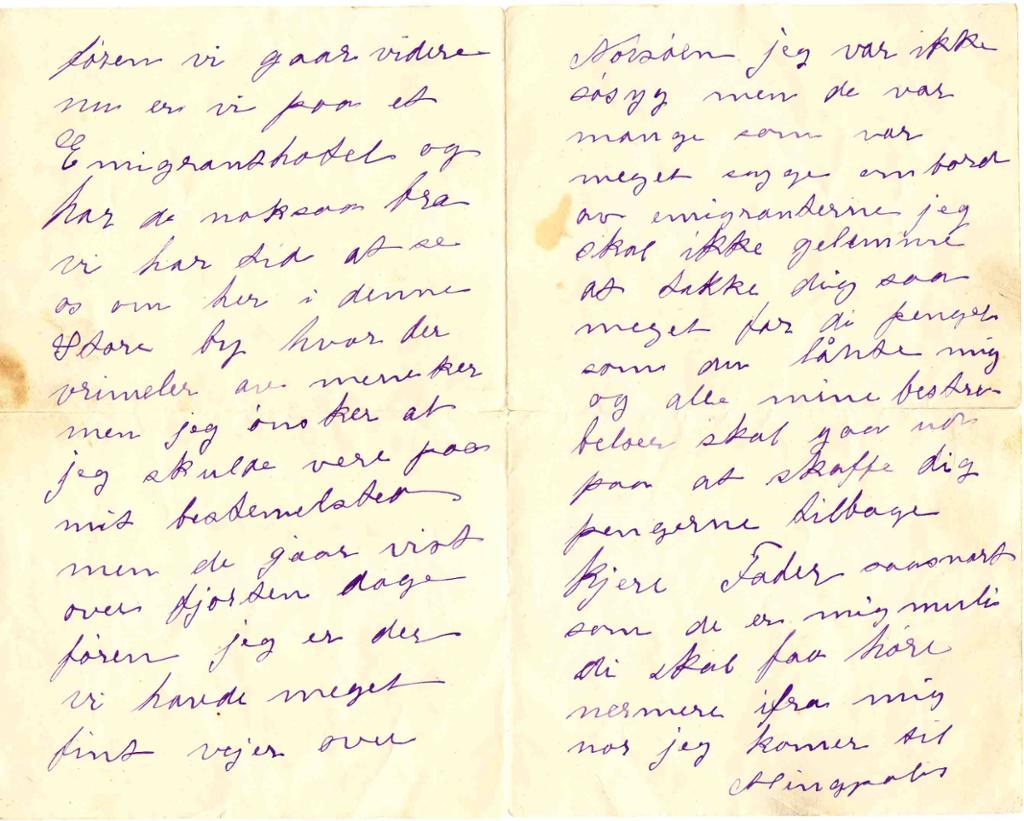 føren vi gaar videre
nu er vi paa et
Emigranthotel og
har de noksaa bra
vi har tid at se
os om her i denne
Store by hvor der
vrimeler av meneker
men jeg ønsker at
jeg skulde vere paa
mit bestemelsted
men de gaar vist
over fjorten dage
føren jeg er der
vi havde meget
fint vejer over
Norsøen jeg var ikke
søsyg men de var
mange som var
meget syge ombord
av emigranterne jeg
skal ikke gelemme
at takke dig saa
meget for di penger
som du lånte mig
og alle mine bestre
belser skal gaa ud
paa at skaffe dig
pengerne tilbage
kjere Fader saasnart
som de er mig muli
di skal faa høre
nermere ifra mig
nor jeg komer til